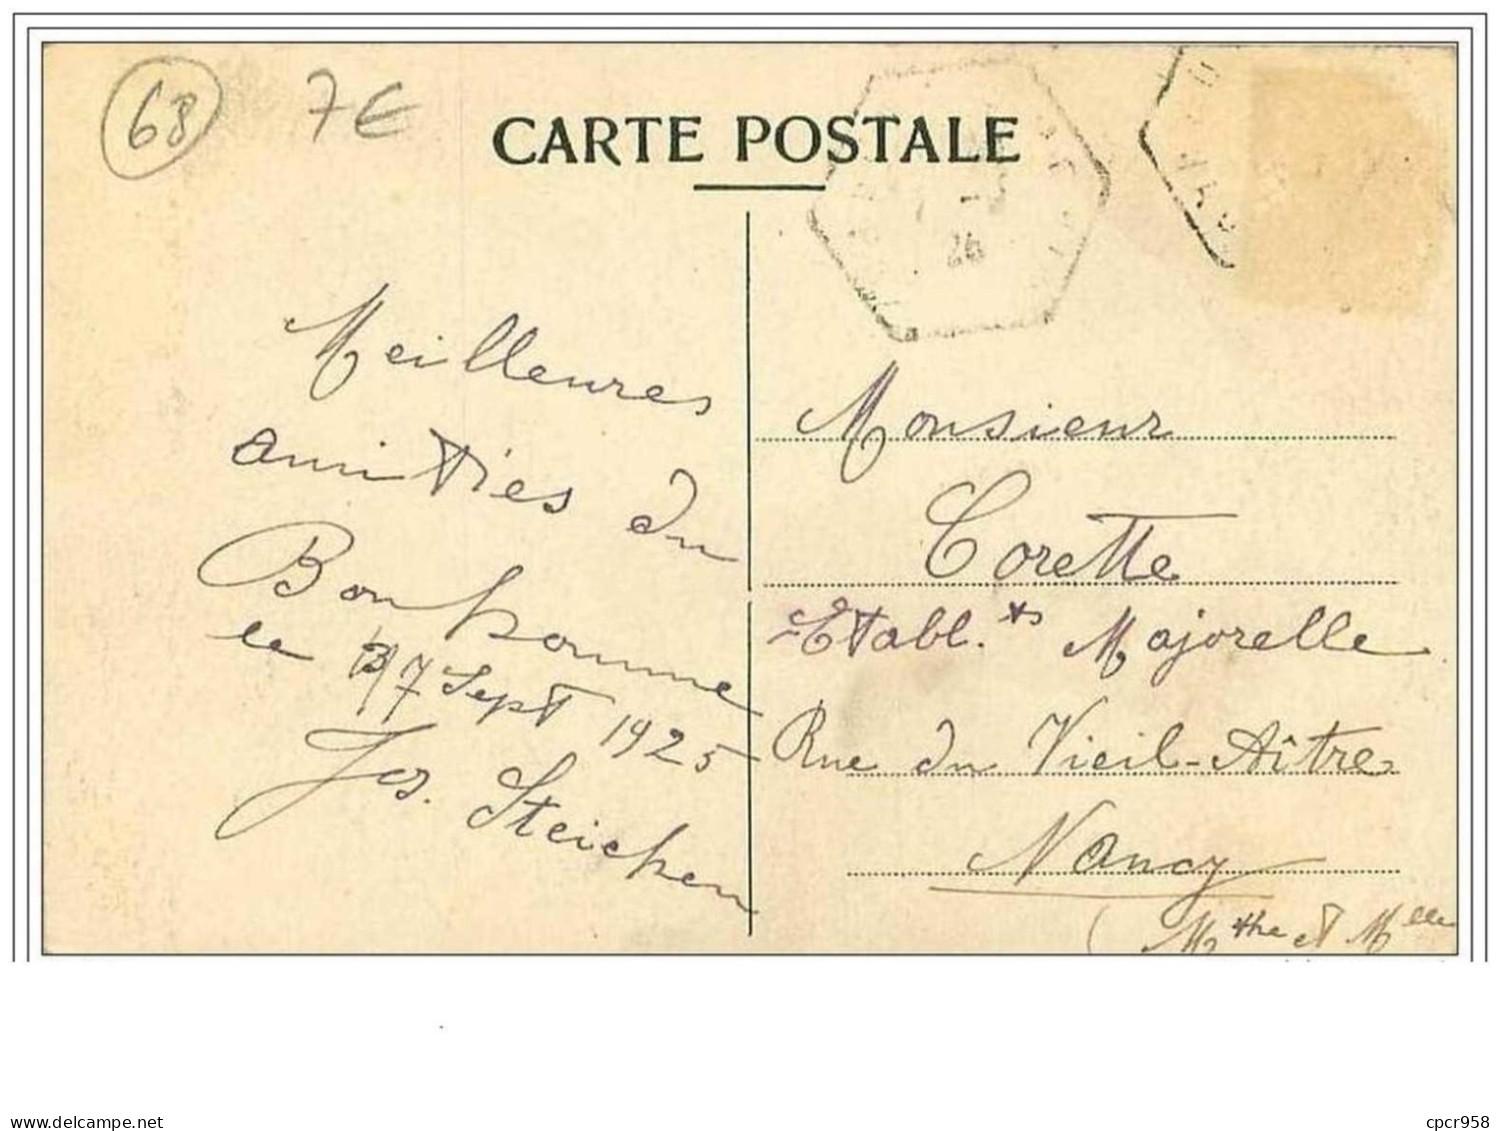 68
7€
CARTE POSTALE
26
Meilleures
amitiés du
Bonhomme
le 7 Sept 1925
Jos. Steichen
Monsieur
Corette
Etabl.ts Majorelle
Rue du Vieil-Aître
Nancy
( et Mlle
www.delcampe.net
cpcr958